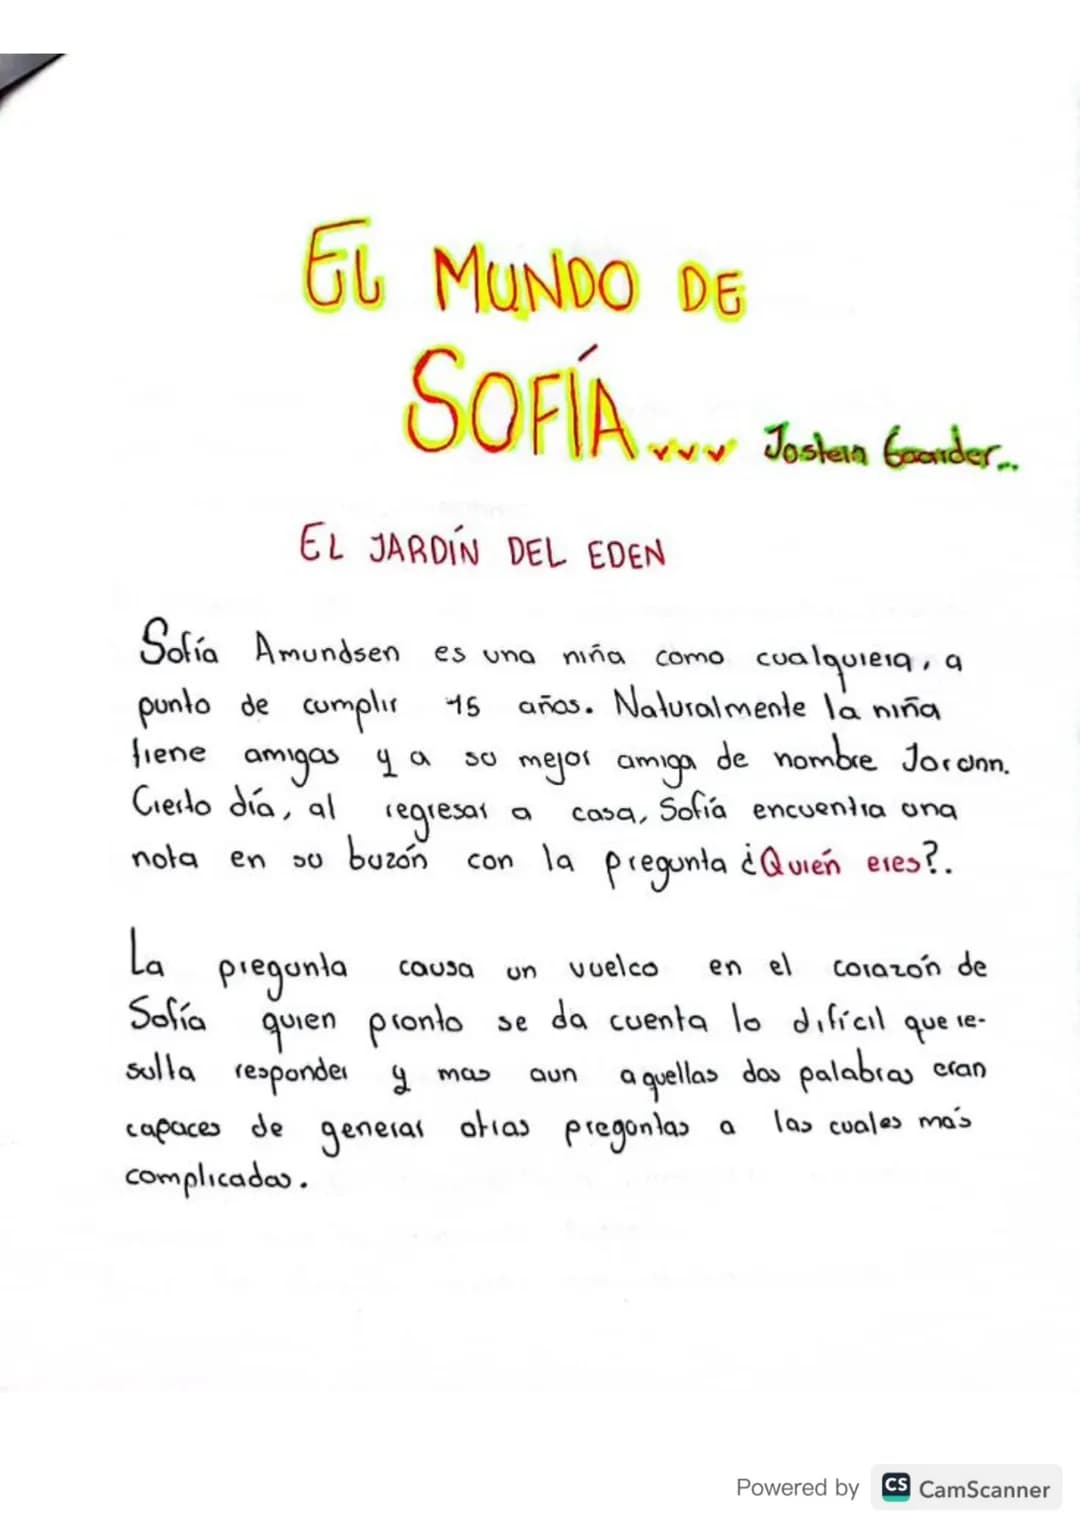 EL MUNDO DE
SOFÍA... Jostein Gaarder..
EL JARDÍN DEL EDEN
Sofía Amundsen es una niña como cualquiera, a
punto de cumplir 15 años. Naturalmente la niña
tiene amigas y a su mejor amiga de nombre Jorunn.
Cierto día, al regresar a casa, Sofía encuentra una
nota en su buzón con la pregunta ¿Quién eres?.
La pregunta causa un vuelco en el corazón de
Sofía quien pronto se da cuenta lo difícil que re-
sulta responder y mas aun aquellas dos palabras eran
capaces de generar otras preguntas a las cuales más
complicadas.
Powered by CS CamScanner